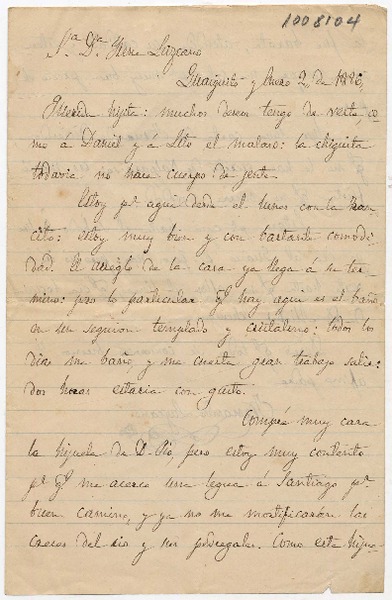 1008104
Sa. Da. Irene Lazcano
Guaiquito y Enero 2, de 1886,
Querida hijita: muchos deseos tengo de verte, co
mo á Daniel y a Lito el mataro: la chiquita
todavia no hace cuerpo de gente.
Estoy pr. aqui desde el lunes con la Pan
cito: estoy muy bien y con bastante comodi
dad. El arreglo de la casa ya llega á su ter
mino: pero lo particular qe. hay aqui es el baño,
en un sequion templado y cristalino: todos los
dias me baño, y me cuesta gran trabajo salir:
dos horas estaria con gusto.
Compré muy cara
la hijuela de D. Pio, pero estoy muy contento
pr. qe. me acerca una legua á Santiago pr.
buen camino, y ya no me mortificarán las
creces del rio y sus pedregales. Como esta hijue-